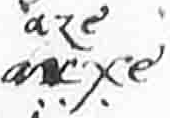 aze
anxe